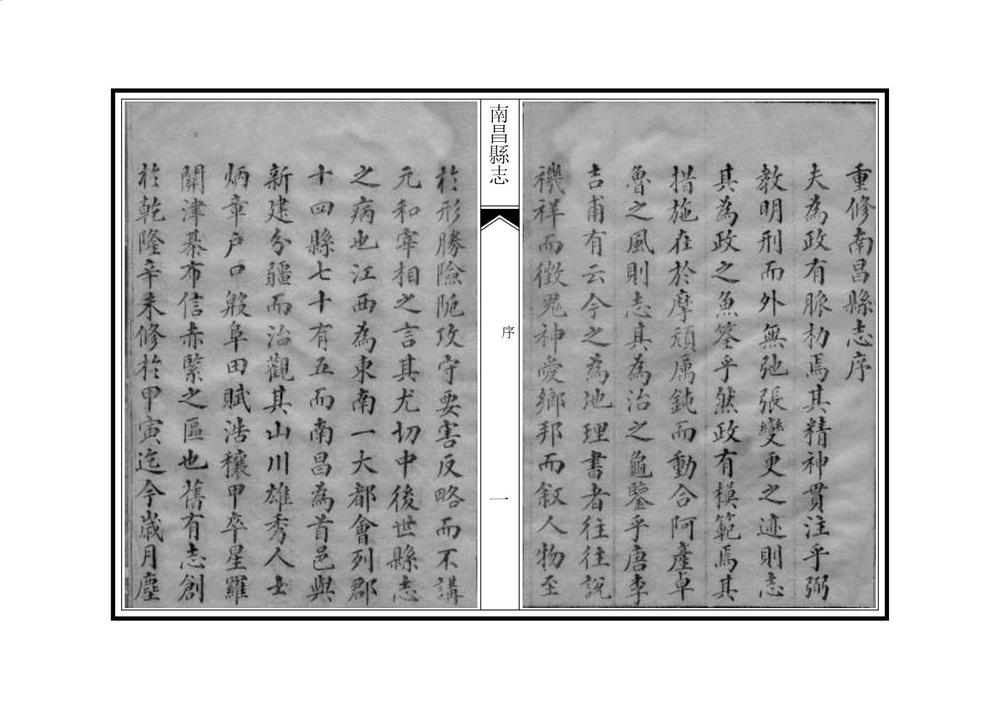 重修南昌縣志序
夫為政有脈札焉其精神貫注乎弼
教明刑而外無弛張變更之迹則志
其為政之魚筌乎然政有模範焉其
措施在於摩頑厲鈍而動合阿產卓
魯之風則志其為治之龜鑒乎唐李
吉甫有云今之為地理書者往往說
禨祥而徴鬼神愛鄉邦而叙人物至
南昌縣志
序
一
於形勝險阨攻守要害反略而不講
元和宰相之言其尤切中後世縣志
之病也江西為東南一大都會列郡
十四縣七十有五而南昌為首邑與
新建分疆而治觀其山川雄秀人士
炳章戶口殷阜田賦浩穰甲卒星羅
關津棊布信赤緊之區也舊有志創
於乾隆辛未修於甲寅迄今歲月塵